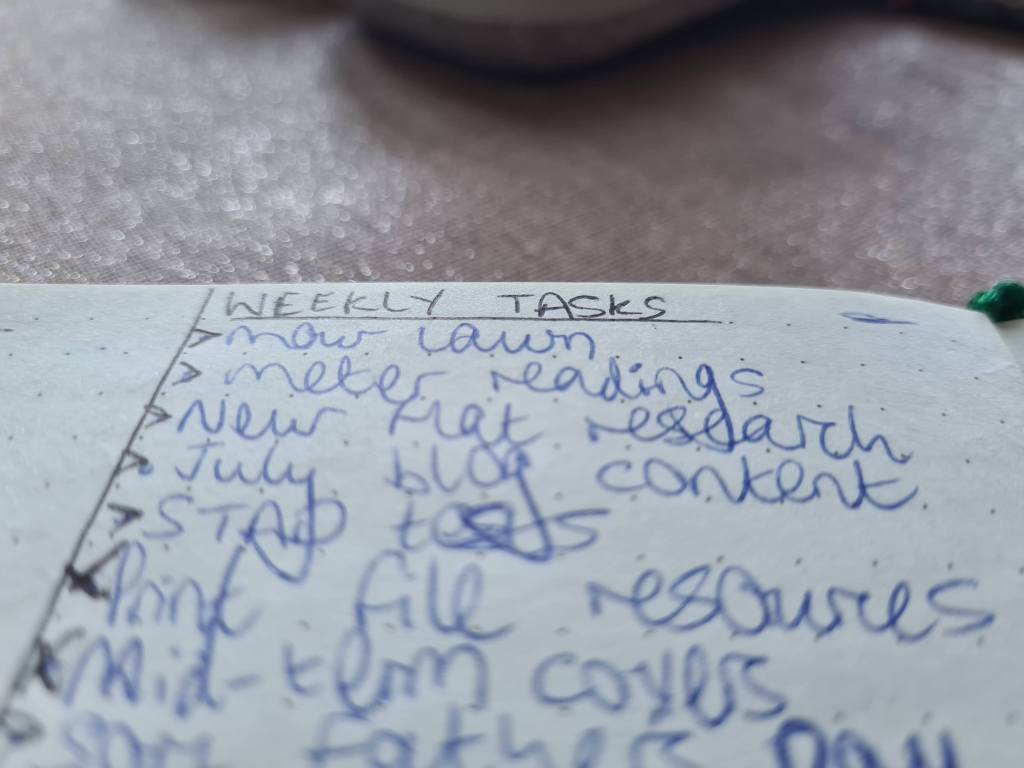 WEEKLY TASKS
> mow lawn
> meter readings
> New flat research
> July blog content
> STAD
Print file resources
Mid-term covers
Sort Father Day